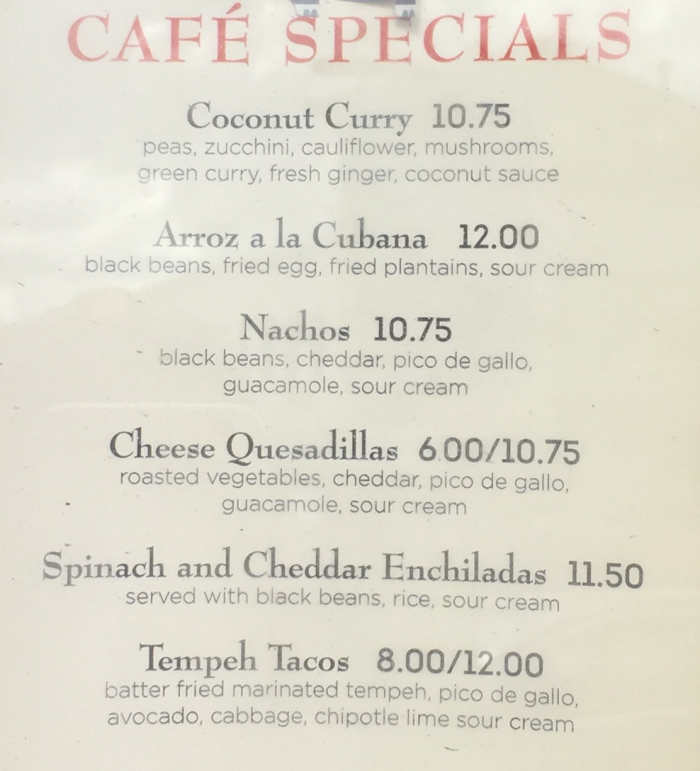 CAFÉ SPECIALS
Coconut Curry 10.75
peas, zucchini, cauliflower, mushrooms,
green curry, fresh ginger, coconut sauce
Arroz a la Cubana 12.00
black beans, fried egg, fried plantains, sour cream
Nachos 10.75
black beans, cheddar, pico de gallo,
guacamole, sour cream
Cheese Quesadillas 6.00/10.75
roasted vegetables, cheddar, pico de gallo,
guacamole, sour cream
Spinach and Cheddar Enchiladas 11.50
served with black beans, rice, sour cream
Tempeh Tacos 8.00/12.00
batter fried marinated tempeh, pico de gallo,
avocado, cabbage, chipotle lime sour cream